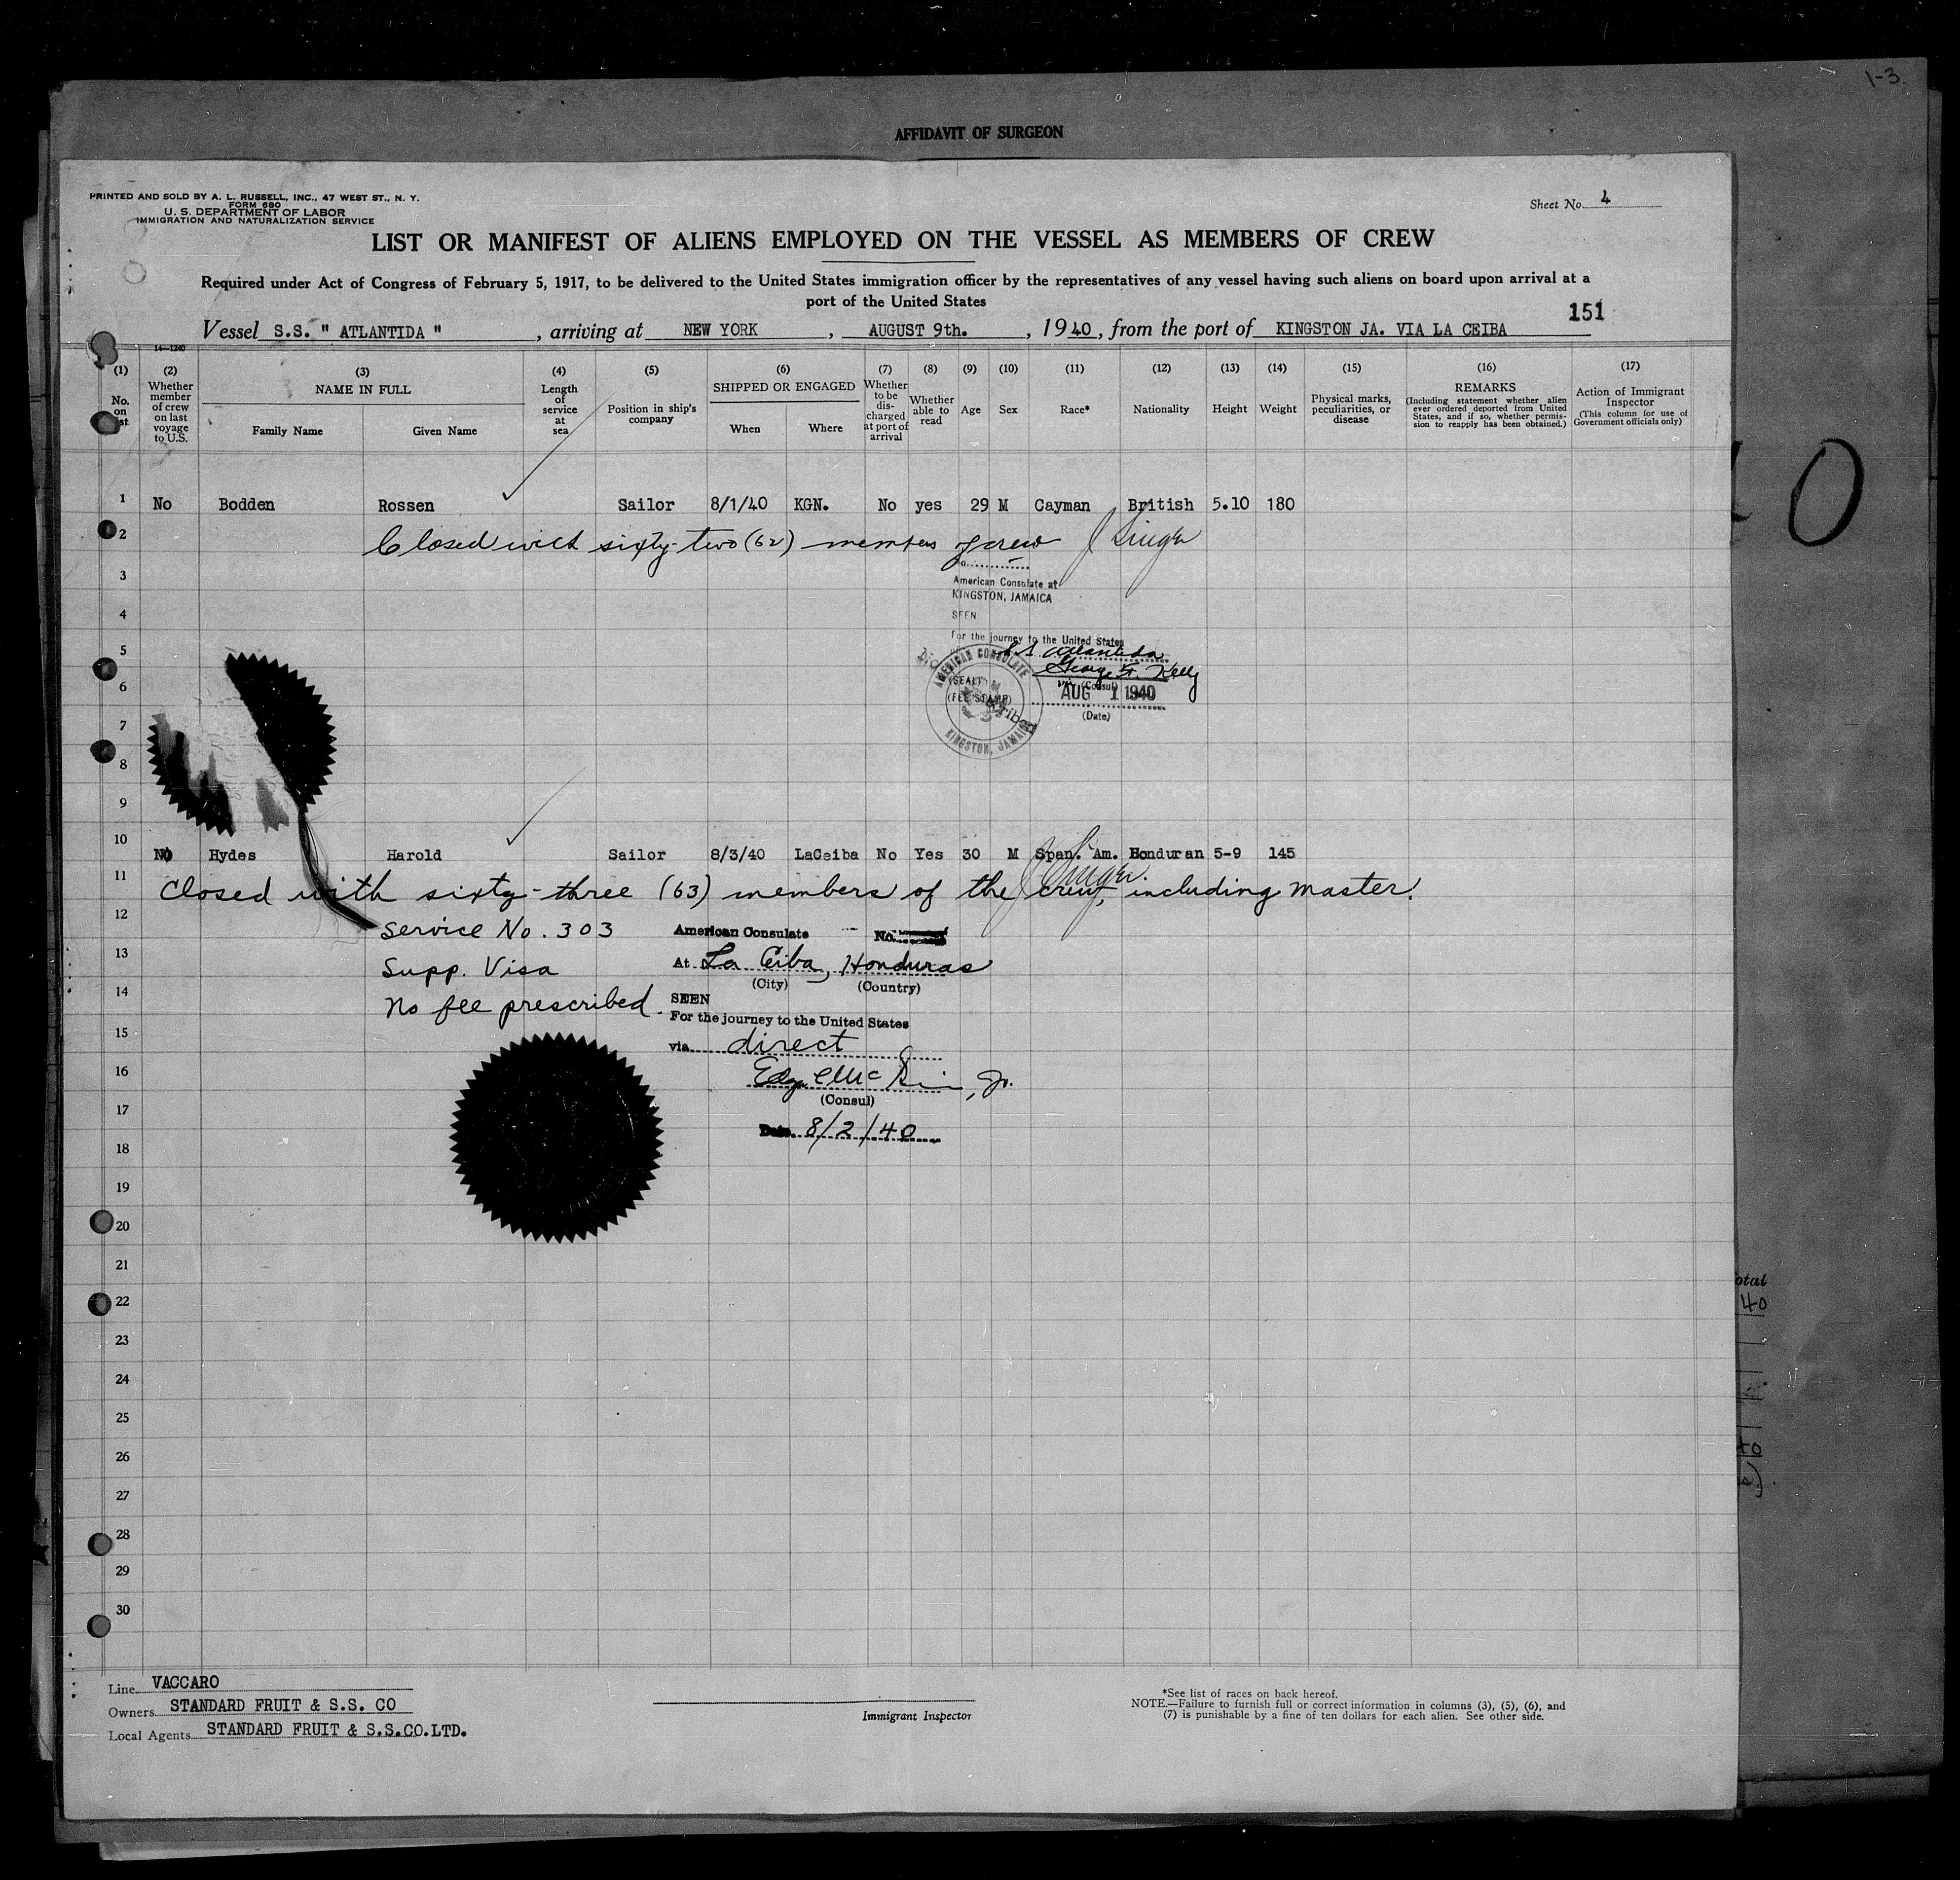 1-3
AFFIDAVIT OF SURGEON
PRINTED AND SOLD BY A. L. RUSSELL, INC., 47 WEST ST., N. Y.
FORM 680
U. S. DEPARTMENT OF LABOR
IMMIGRATION AND NATURALIZATION SERVICE
Sheet No. 4
LIST OR MANIFEST OF ALIENS EMPLOYED ON THE VESSEL AS MEMBERS OF CREW
Required under Act of Congress of February 5, 1917, to be delivered to the United States immigration officer by the representatives of any vessel having such aliens on board upon arrival at a
port of the United States
151
Vessel S.S. " ATLANTIDA ", arriving at NEW YORK, AUGUST 9th., 1940, from the port of KINGSTON JA. VIA LA CEIBA
14-1240
(1) No. on list
(2) Whether member of crew on last voyage to U.S.
(3) NAME IN FULL Family Name Given Name
(4) Length of service at sea
(5) Position in ship's company
(6) SHIPPED OR ENGAGED When Where
(7) Whether to be discharged at port of arrival
(8) Whether able to read
(9) Age
(10) Sex
(11) Race*
(12) Nationality
(13) Height
(14) Weight
(15) Physical marks, peculiarities, or disease
(16) REMARKS (Including statement whether alien ever ordered deported from United States, and if so, whether permission to reapply has been obtained.)
(17) Action of Immigrant Inspector (This column for use of Government officials only)
1 No Bodden Rossen Sailor 8/1/40 KGN. No yes 29 M Cayman British 5.10 180
2 Closed with sixty-two (62) members of crew J Singer
No.
3 American Consulate at
KINGSTON, JAMAICA
4 SEEN
For the journey to the United States
5 S.S. Atlantida
George F. Kelly
6 (SEAL) (Consul)
(FEE STAMP) AUG 1 1940
(Date)
AMERICAN CONSULATE
KINGSTON, JAMAICA
7
8
9
10 No Hydes Harold Sailor 8/3/40 LaCeiba No Yes 30 M Span. Am. Honduran 5-9 145
J Singer
11 Closed with sixty-three (63) members of the crew, including master.
12 Service No. 303 American Consulate No.
13 Supp. Visa At La Ceiba, Honduras
(City) (Country)
14 No fee prescribed. SEEN
For the journey to the United States
15 via direct
16 , Jr.
(Consul)
17 Date 8/2/40
18
19
20
21
22
23
24
25
26
27
28
29
30
otal
40
Line VACCARO
Owners STANDARD FRUIT & S.S. CO
Local Agents STANDARD FRUIT & S.S.CO.LTD.
Immigrant Inspector
*See list of races on back hereof.
NOTE.—Failure to furnish full or correct information in columns (3), (5), (6), and
(7) is punishable by a fine of ten dollars for each alien. See other side.